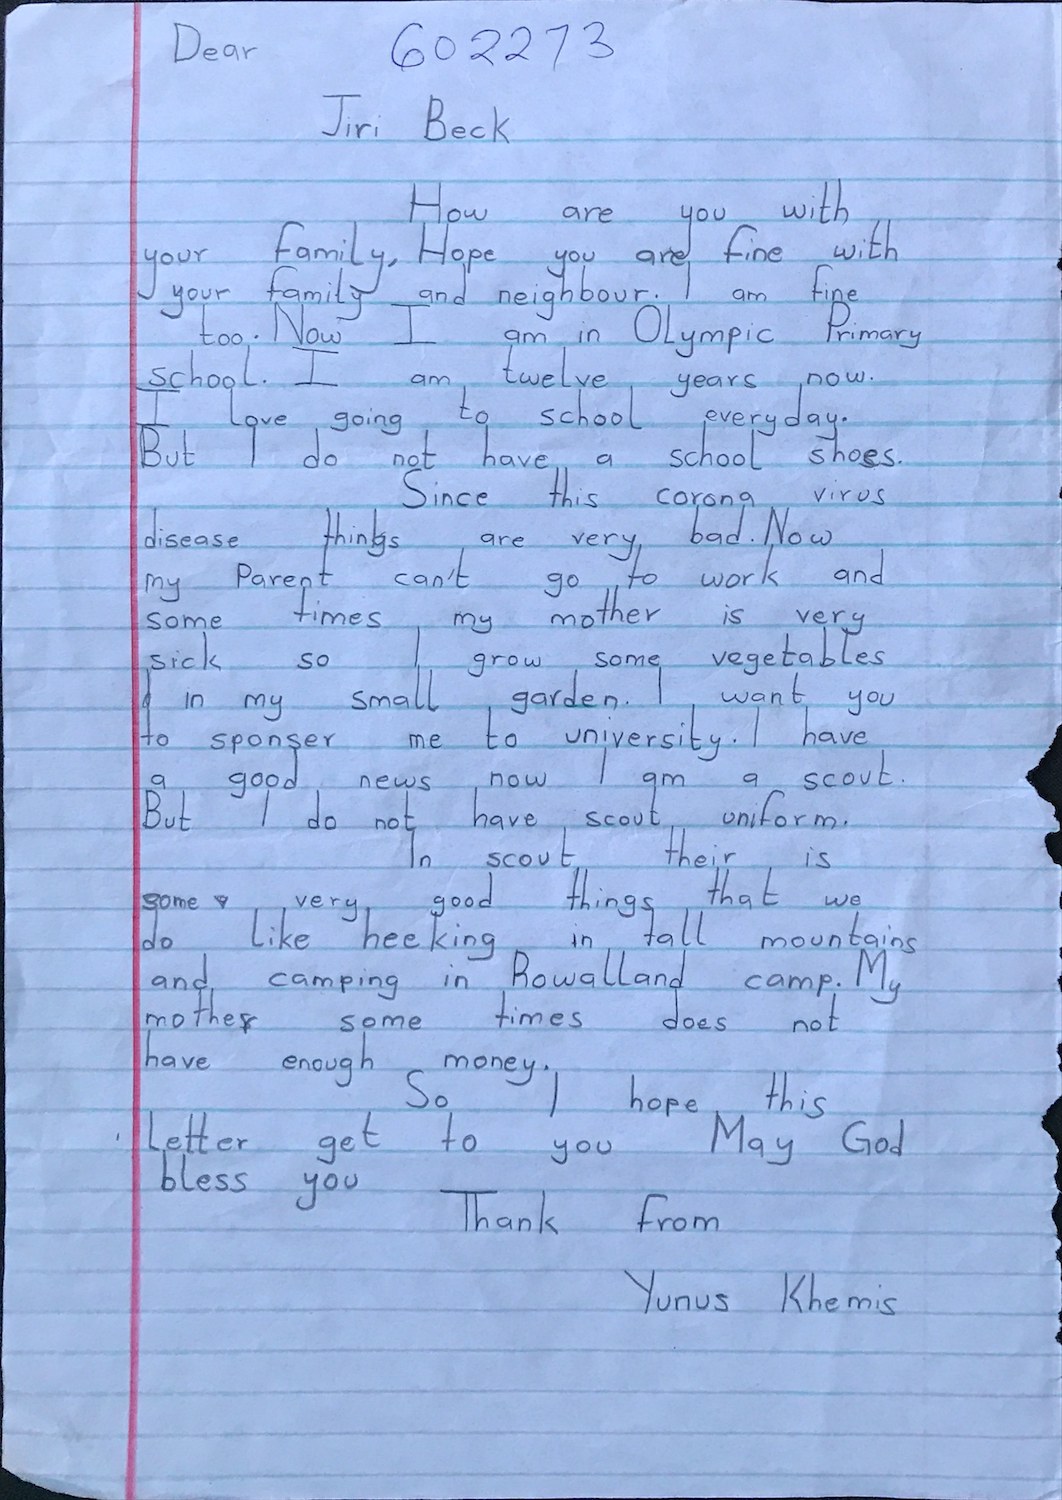 Dear 602273
Jiri Beck
How are you with
your family, Hope you are fine with
your family and neighbour. I am fine
too. Now I am in Olympic Primary
school. I am twelve years now.
I love going to school everyday.
But I do not have a school shoes.
Since this corona virus
disease things are very bad. Now
my Parent can't go to work and
some times my mother is very
sick so I grow some vegetables
in my small garden. I want you
to sponser me to university. I have
a good news now I am a scout.
But I do not have scout uniform.
In scout their is
some very good things that we
do like heeking in tall mountains
and camping in Rowalland camp. My
mother some times does not
have enough money.
So I hope this
Letter get to you May God
bless you
Thank from
Yunus Khemis